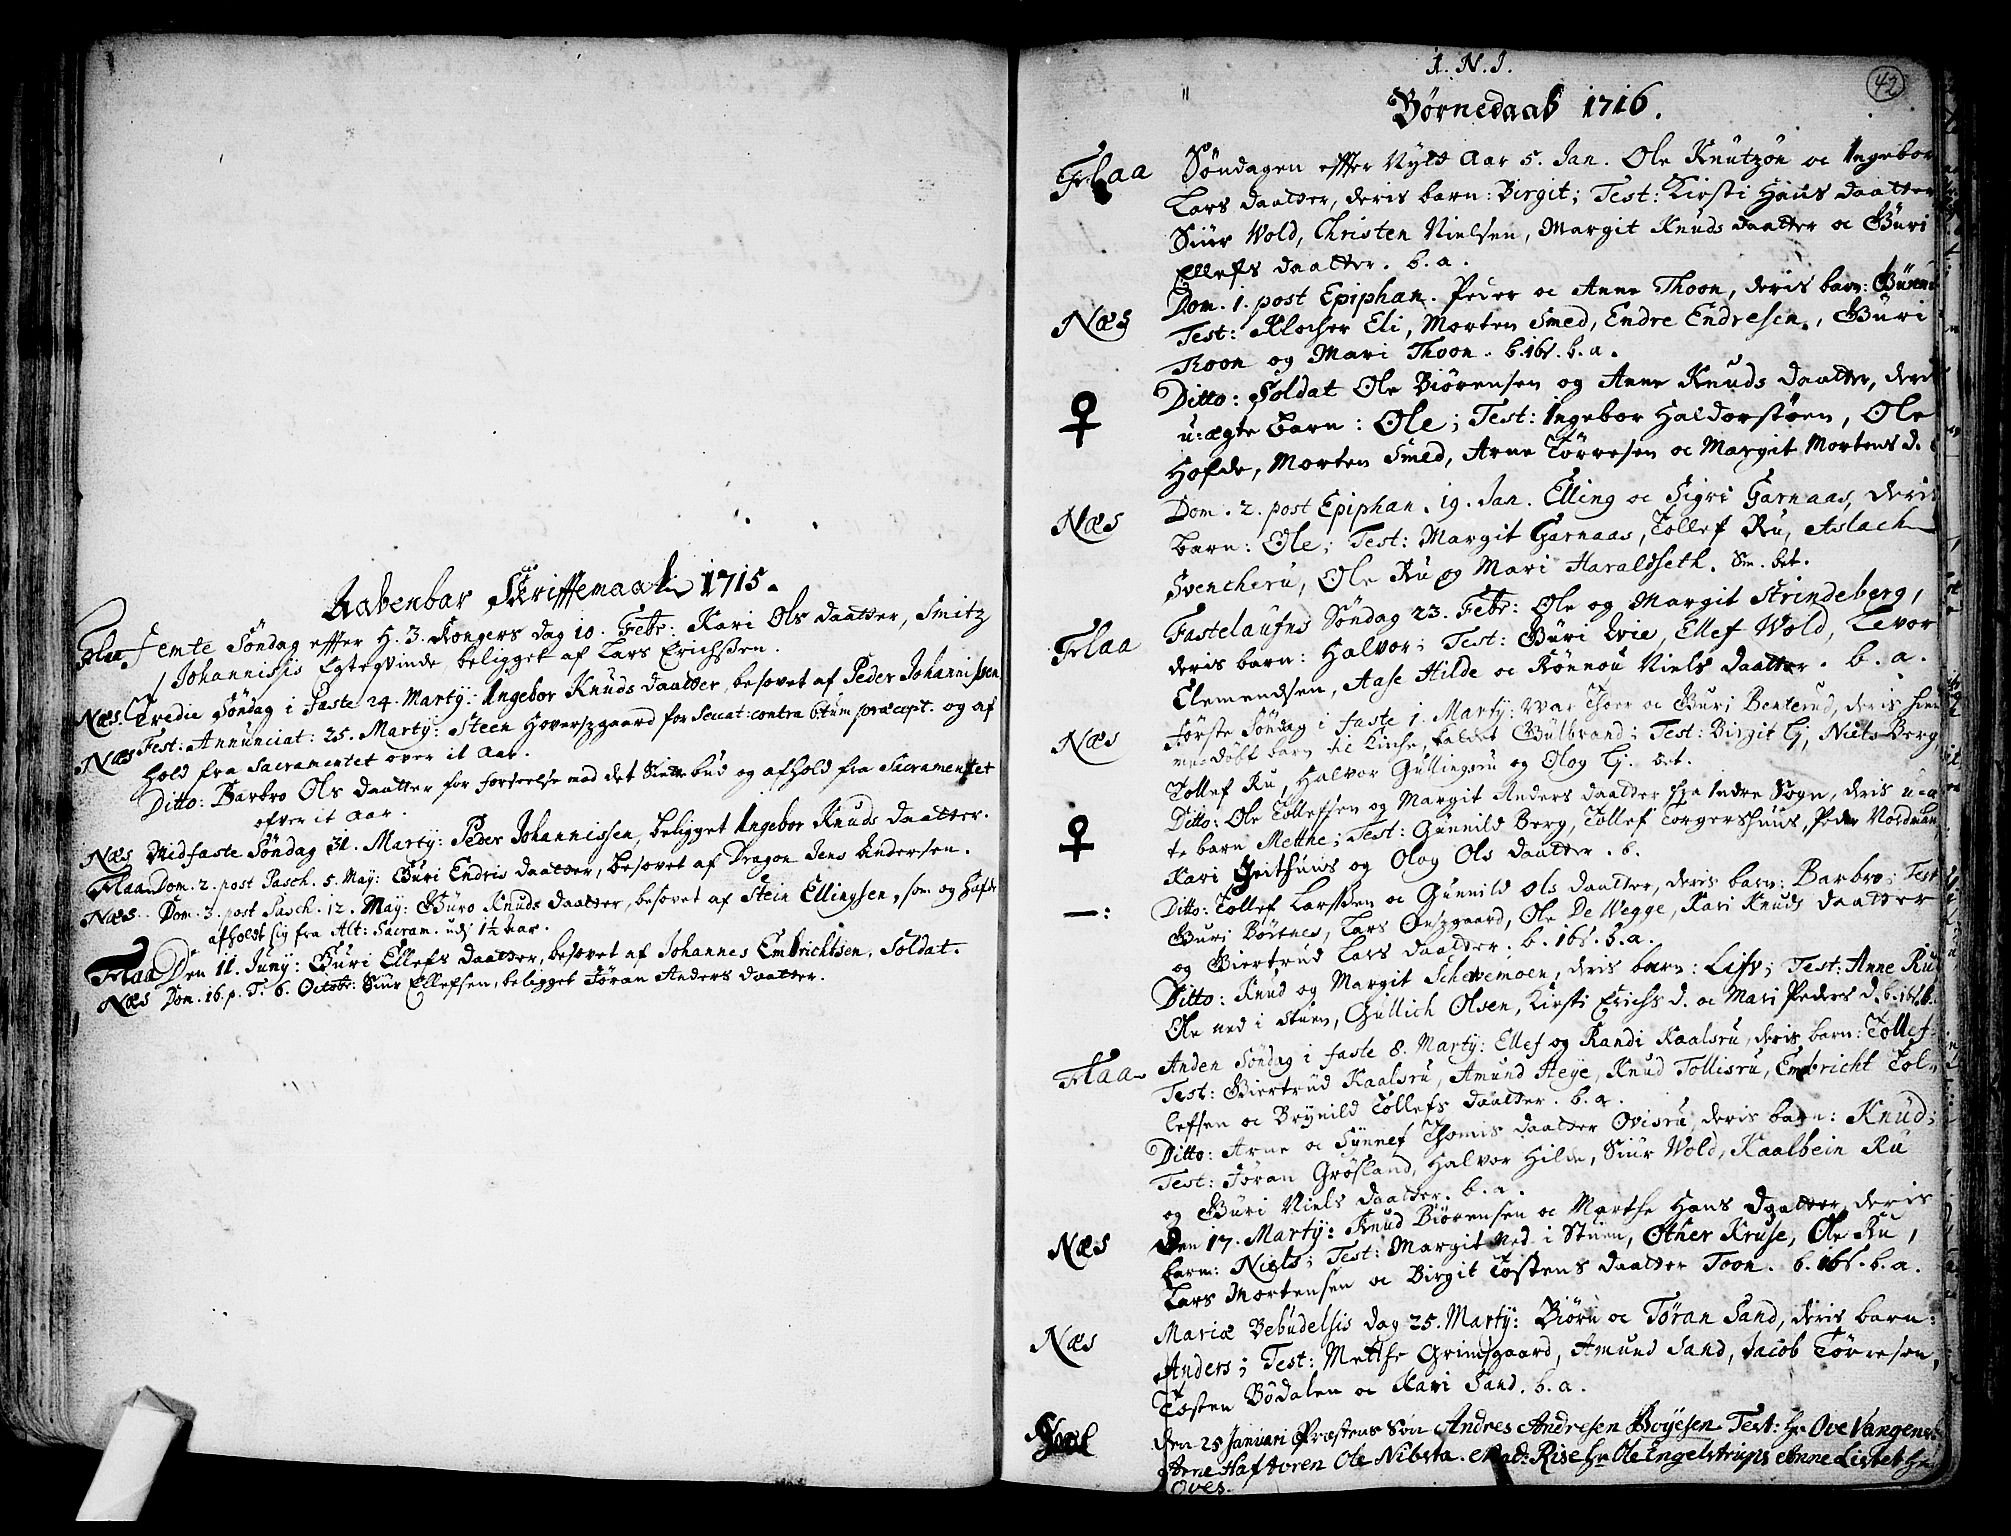 Aabenbar Skrifftemaal 1715.
Flaa Femte Søndag effter H. 3. Kongers dag 10. Febr: Kari Ols daatter, Smitz
Johannisis Egtegvinde beligget af Lars Erichssen.
Næs. Tredie Søndag i Faste 24. Martij: Ingebor Knuds daatter, besovet af Peder Johannissen
Næs Fest: Annunciat: 25. Martij: Steen Hoverszgaard for contra 6tum præcept. og af
hold fra Sacramentet over it Aar.
Ditto: Barbro Ols daatter for forseelse mod det Siette bud og afhold fra Sacramentet
ofver it Aar.
Næs Midfaste Søndag 31. Martij: Peder Johannissen, beligget Ingebor Knuds daatter.
Flaa Dom. 2. post Pasch. 5. Maij: Guri Endris daatter, besovet af Dragon Jens Andersen.
Næs Dom. 3. post Pasch. 12. Maij: Guro Knuds daatter, besovet af Stein Ellingsen, som og hafde
afholdt sig fra Alt: Sacram. udj 1½ aar.
Flaa Den 11. Junij: Guri Ellefs daatter, besovet af Johannes Embrichtsen. Soldat.
Næs Dom. 16. p. T. 6. Octobr: Siur Ellefsen, beligget Jøran Anders daatter.
42
I. N. J.
Børnedaab 1716.
Flaa Søndagen effter Nyt Aar 5. Jan. Ole Knutzøn oc Ingebor
Lars daatter, deris barn: Birgit; Test: Kirsti Hans daatter
Siur Wold, Christen Nielsen, Margit Knuds daatter oc Guri
Ellefs daatter. b. a.
Næs Dom. 1. post Epiphan. Peder oc Anne Thoon, deris barn:
Test: Klocker Eli, Morten Smed, Endre Endresen, Guri
Thoon og Mari Thoon. b. 16s. b. a.
♀ Ditto: Soldat Ole Biørensen og Anne Knuds daatter, deris
u-ægte barn: Ole; Test: Ingebor Haldorstøen, Ole
Hofde, Morten Smed, Arne Tørresen oc Margit Mortens d.
Næs Dom. 2. post Epiphan. 19. Jan. Elling oc Sigri Garnaas, deris
barn: Ole; Test: Margit Garnaas, Tollef Ru, Aslach
Svencheru, Ole Ru og Mari Haraldseth. Sm. bet.
Flaa Fastelaufns Søndag 23. Febr: Ole og Margit Strindeberg,
deris barn: Halvor; Test: Guri Wie, Ellef Wold, Levor
Clemendsen, Aase Hilde oc Rønnou Niels daatter. b. a.
Næs Første Søndag i faste 1. Martij: War Thoer oc Guri Benterud, deris hiem
medøbt barn til kirche, kaldet Gulbrand; Test: Birgit Lj, Niels Berg,
Tollef Ru, Halvor Gullingsru og Olog Lj. bet.
♀ Ditto: Ole Tollefsen og Margit Anders daatter fra Indre Sogn, deris u-æ
te barn Mette; Test: Gunnild Berg, Tollef Torgershuus, Peder Nordman
Kari Geithuus og Olog Ols daatter. b.
—: Ditto: Tollef Larssen oc Gunnild Ols daatter, deris barn: Barbro; Test
Guri Børtnes, Lars Onszgaard, Ole De Wegge, Kari Knuds daatter
og Giertrud Lars daatter. b. 16s. b. a.
Ditto: Knud og Margit Schevemoen, deris barn: Lifv; Test: Anne Rud
Ole ned i stuen, Gullich Olsen, Kirsti Erichs d. oc Mari Peders d. b. 16s. b.
Flaa Anden Søndag i faste 8. Martij: Ellef og Randi Kaalsru, deris barn: Tollef:
Test: Giertrud Kaalsru, Amund Heye, Knud Tollisru, Embricht Tol-
lefsen oc Brynild Tollefs daatter. b. a.
Ditto: Arne oc Synnef Thomis daatter Ovisru, deris barn: Knud;
Test: Jøran Grøsland, Halvor Hilde, Siur Wold, Kaalbein Ru
og Guri Niels daatter. b. a.
Næs Den 17. Martij: Knud Biørensen oc Marthe Hans daatter, deris
barn: Niels; Test: Margit Ned i Stuen, Other Kruse, Ole Ru,
Lars Mortensen oc Birgit Tostens daatter Toon. b. 16s. b. a.
Næs Mariæ Bebudelsis dag 25. Martij: Biørn oc Jøran Sand, deris barn:
Anders; Test: Metthe Grimsgaard, Amund Sand, Jacob Tørresen,
Tosten Bødalen oc Kari Sand. b. a.
den 25 Januari Præstens Søn Andres Andresen Boyesen Test: Hr Ove Vangens
Arne Haftoren Ole Nibsta. Mad: Rise Hr Ole Engelstrups Anne Listet Hr
Oves.